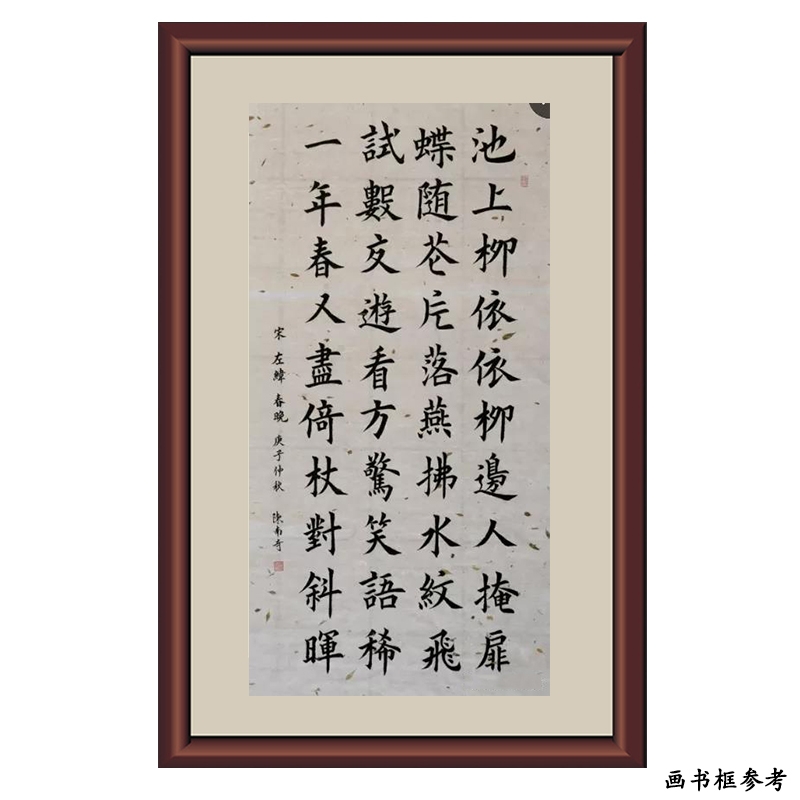 池上柳依依柳邊人掩扉
蝶随花片落燕拂水紋飛
試數交遊看方驚笑語稀
一年春又盡倚杖對斜暉
宋 左緯 春晚 庚子仲秋 陳南奇
画书框参考